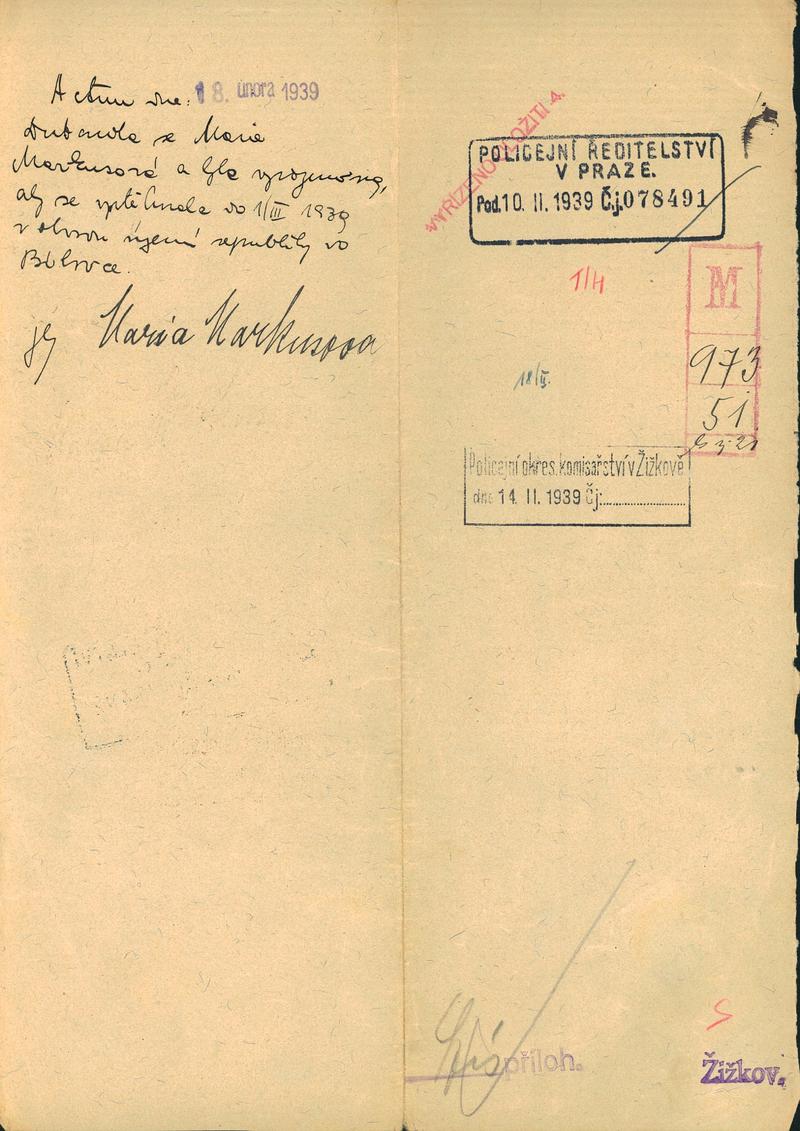 Actum dne: 18. února 1939
se Marie
Markusová a byla vyzvána,
aby se vystěhovala do 1/III 1939
z obvodu území republiky
Maria Markusova
VYŘÍZENO ULOŽITI 4.
POLICEJNÍ ŘEDITELSTVÍ
V PRAZE.
Pod. 10. II. 1939 Čj. 078491
1/H
M
973
18/II.
51
Policejní okres. komisařství v Žižkově
dne 14. II. 1939 Čj:
příloh.
S
Žižkov.